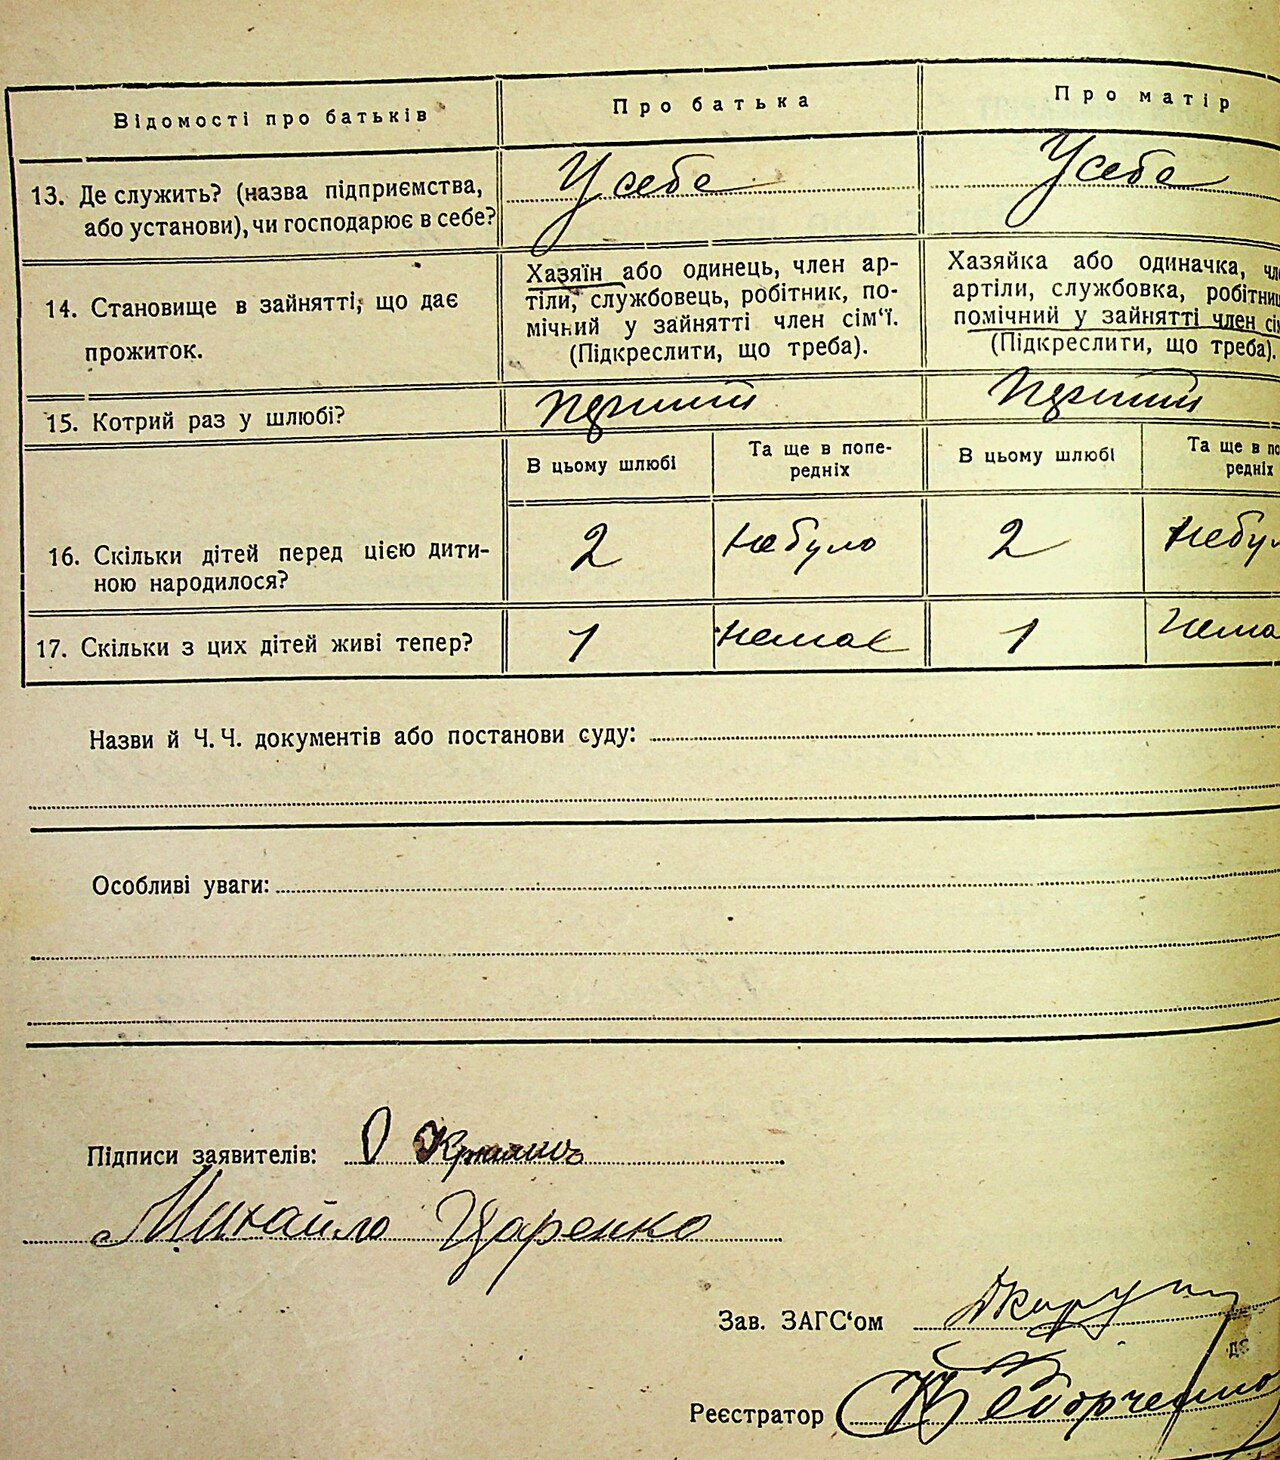 Відомості про батьків
Про батька
Про матір
13. Де служить? (назва підприємства,
або установи), чи господарює в себе?
У себе
У себе
14. Становище в зайнятті, що дає
прожиток.
Хазяїн або одинець, член ар-
тілі, службовець, робітник, по-
мічний у зайнятті член сім'ї.
(Підкреслити, що треба).
Хазяйка або одиначка, чл
артілі, службовка, робітниц
помічний у зайнятті член сім
(Підкреслити, що треба).
15. Котрий раз у шлюбі?
перший
перший
В цьому шлюбі
Та ще в попе-
редніх
В цьому шлюбі
Та ще в по
редніх
16. Скільки дітей перед цією дити-
ною народилося?
2
небуло
2
небул
17. Скільки з цих дітей живі тепер?
1
немає
1
нема
Назви й Ч.Ч. документів або постанови суду:
Особливі уваги:
Підписи заявителів:
Михайло Царенко
Зав. ЗАГС'ом
Реєстратор